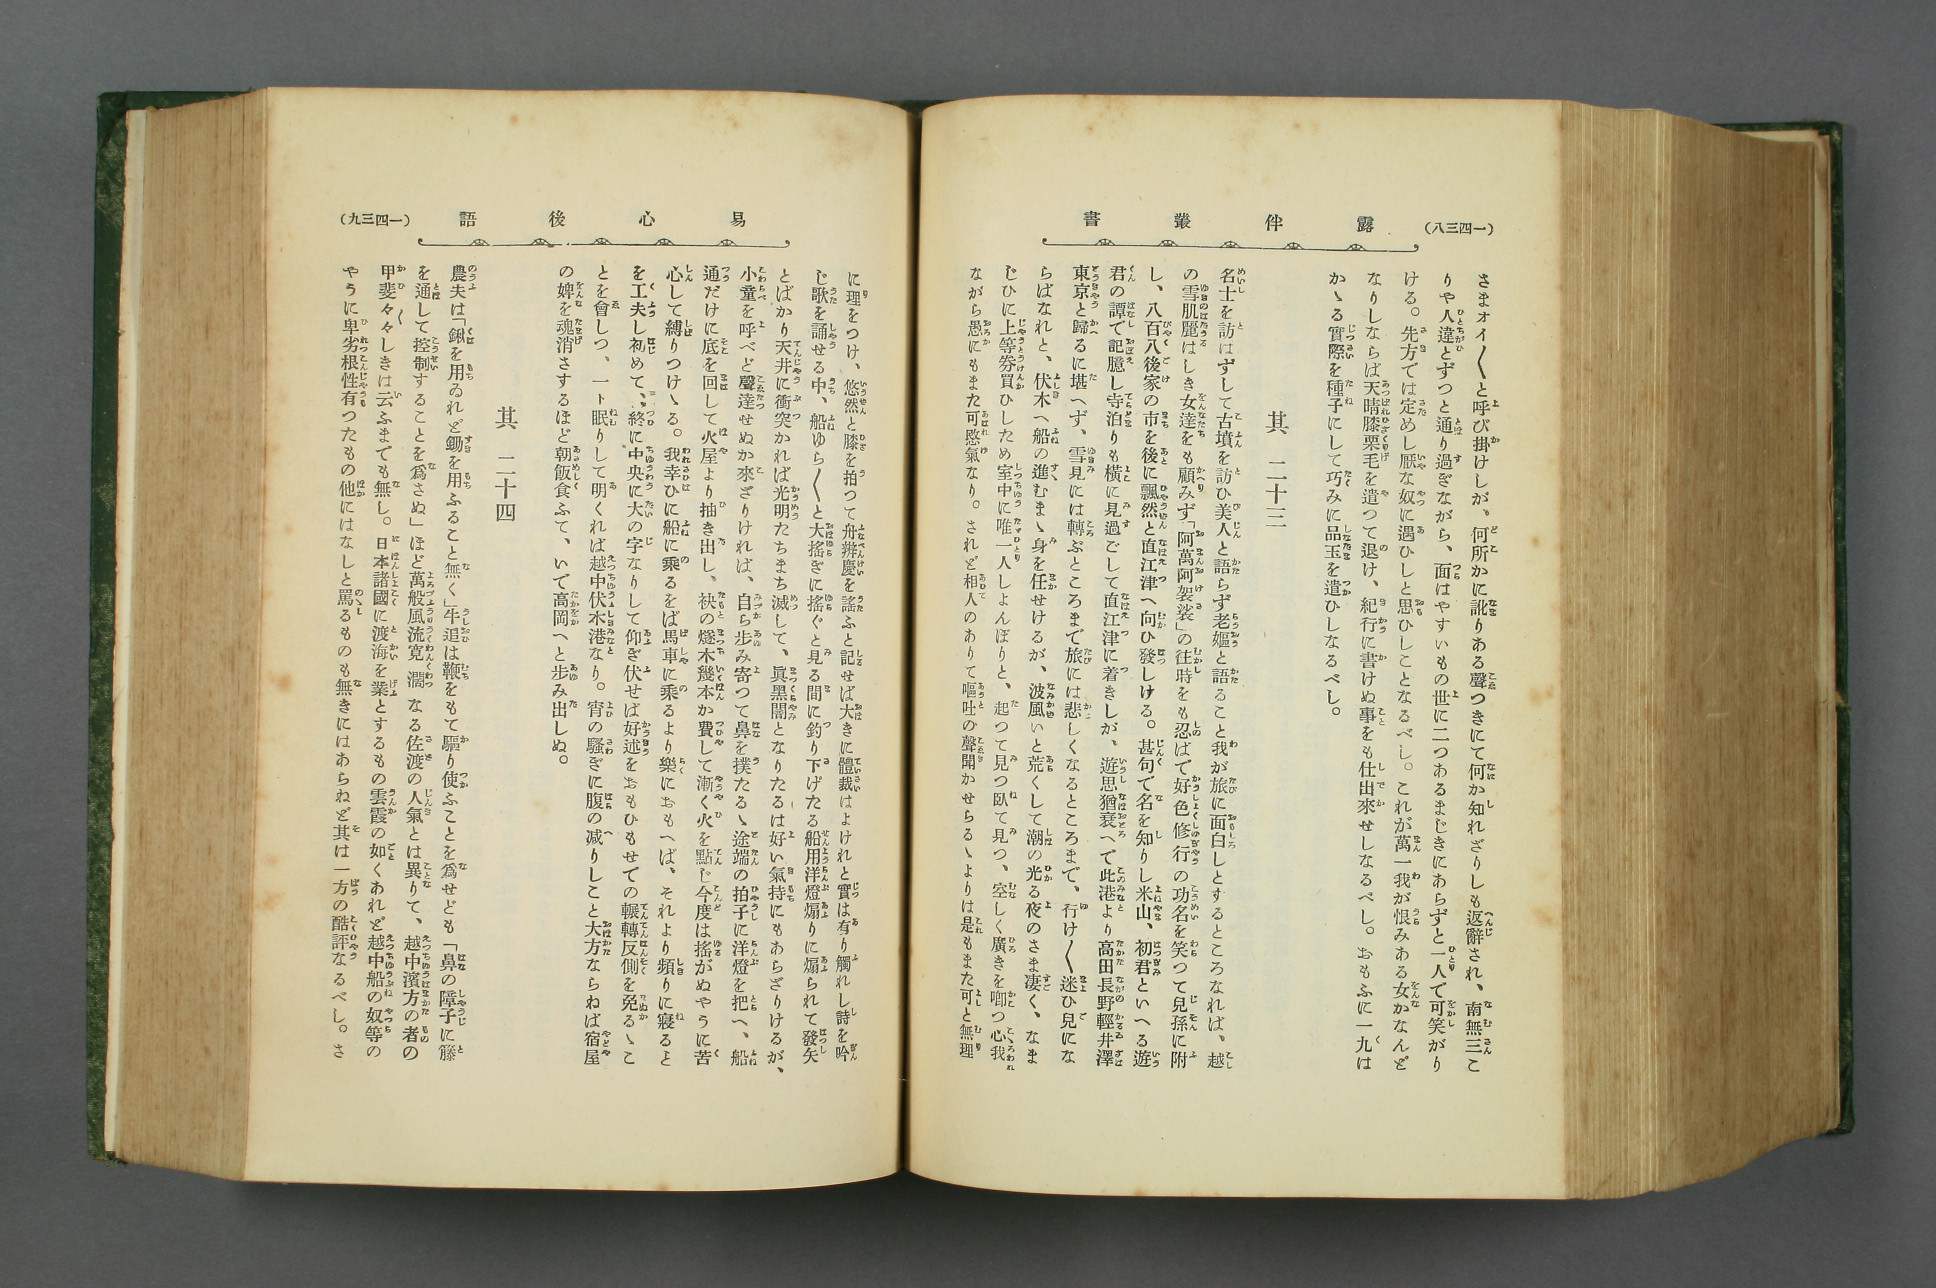 (一四三八)
露伴叢書
さまオイ〱と呼び掛けしが、何所かに訛りある聲つきにて何か知れざりしも返辭され、南無三こ
りや人違とずつと通り過ぎながら、面はやすいもの世に二つあるまじきにあらずと一人で可笑がり
ける。先方では定めし厭な奴に遇ひしと思ひしことなるべし。これが萬一我が恨みある女かなんど
なりしならば天晴膝栗毛を遣つて退け、紀行に書けぬ事をも仕出來せしなるべし。おもふに一九は
かゝる實際を種子にして巧みに品玉を遣ひしなるべし。
其二十三
名士を訪はずして古墳を訪ひ美人と語らず老嫗と語ること我が旅に面白しとするところなれば、越
の雪肌麗はしき女達をも顧みず「阿萬阿袈裟」の往時をも忍ばで好色修行の功名を笑つて見孫に附
し、八百八後家の市を後に飄然と直江津へ向ひ發しける。甚句で名を知りし米山、初君といへる遊
君の譚で記臆し寺泊りも橫に見過ごして直江津に着きしが、遊思猶衰へで此港より高田長野輕井澤
東京と歸るに堪へず、雪見には轉ぶところまで旅には悲しくなるところまで、行け〱迷ひ見にな
らばなれと、伏木へ船の進むまゝ身を任せけるが、波風いと荒くして潮の光る夜のさま凄く、なま
じひに上等券買ひしため室中に唯一人しよんぼりと、起つて見つ臥て見つ、空しく廣きを啣つ心我
ながら愚にもまた可愍氣なり。されど相人のありて嘔吐の聲聞かせらるゝよりは是もまた可と無理
易心後語
(一四三九)
に理をつけ、悠然と膝を拍つて舟辨慶を謠ふと記せば大きに體裁はよけれと實は有り觸れし詩を吟
じ歌を誦せる中、船ゆら〱と大搖ぎに搖ぐと見る間に釣り下げたる船用洋燈煽りに煽られて發矢
とばかり天井に衝突かれば光明たちまち滅して、眞黑闇となりたるは好い氣持にもあらざりけるが、
小童を呼べど聲達せぬか來ざりければ、自ら步み寄つて鼻を撲たるゝ途端の拍子に洋燈を把へ、船
通だけに底を回して火屋より抽き出し、袂の燧木幾本か費して漸く火を點じ今度は搖がぬやうに苦
心して縛りつけゝる。我幸ひに船に乘るをば馬車に乘るより樂におもへば、それより頻りに寢ると
を工夫し初めて、終に中央に大の字なりして仰ぎ伏せば好逑をおもひもせでの輾轉反側を免るゝこ
とを會しつ、一ト眠りして明くれば越中伏木港なり。宵の騷ぎに腹の减りしこと大方ならねば宿屋
の婢を魂消さするほど朝飯食ふて、いで高岡へと步み出しぬ。
其二十四
農夫は「鍬を用ゐれど鋤を用ふること無く」牛追は鞭をもて驅り使ふことを爲せども「鼻の障子に籐
を通して控制することを爲さぬ」ほど萬般風流寬濶なる佐渡の人氣とは異りて、越中濱方の者の
甲斐々々しきは云ふまでも無し。日本諸國に渡海を業とするもの雲霞の如くあれど越中船の奴等の
やうに卑劣根性有つたもの他にはなしと罵るものも無きにはあらねど其は一方の酷評なるべし。さ